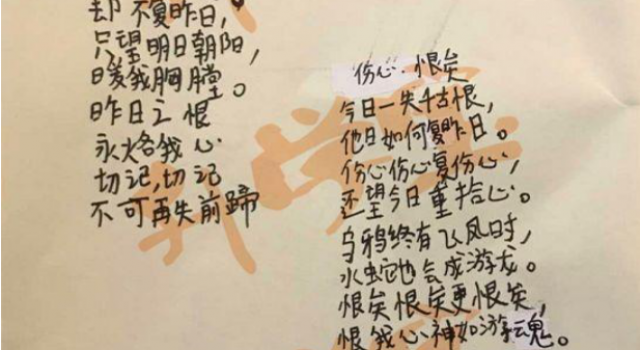 却不复昨日，
只望明日朝阳，
暖我胸膛。
昨日之恨
永烙我心
切记，切记
不可再失前蹄
伤心·恨矣
今日一失千古恨，
他日如何复昨日。
伤心伤心复伤心，
还望今日重拾心。
乌鸦终有飞凤时，
水蛇也会成游龙。
恨矣恨矣更恨矣，
恨我心神如游魂。